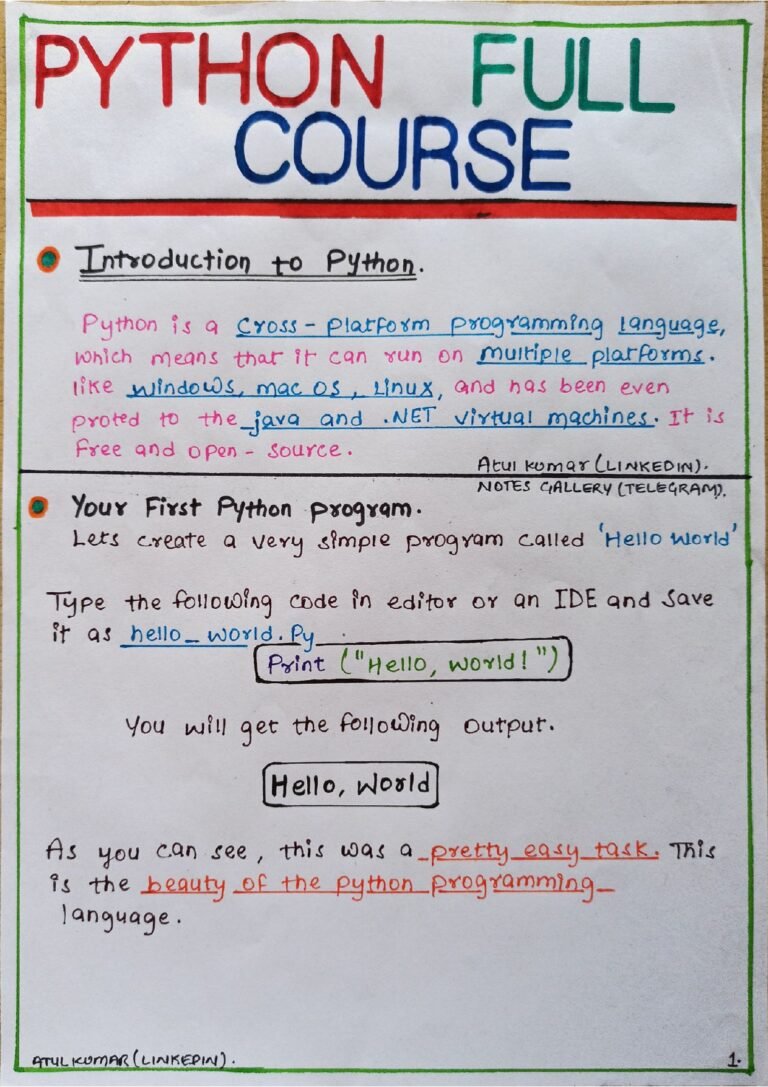 PYTHON FULL
COURSE
Introduction to Python.
Python is a cross-platform programming language,
which means that it can run on multiple platforms.
like windows, mac OS, Linux, and has been even
proted to the java and .NET virtual machines. It is
free and open-source.
Atul kumar (LINKEDIN).
NOTES GALLERY (TELEGRAM).
Your First Python program.
Lets create a very simple program called 'Hello World'
Type the following code in editor or an IDE and save
it as hello_world.Py
Print ("Hello, world!")
You will get the following output.
Hello, world
As you can see, this was a pretty easy task. This
is the beauty of the python programming
language.
ATUL KUMAR (LINKEDIN).
1.